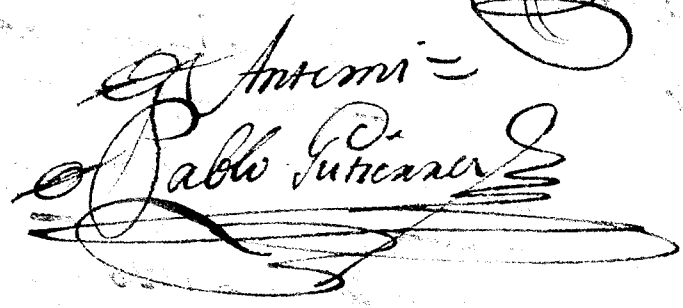 Antemi =
Pablo Gutierrez